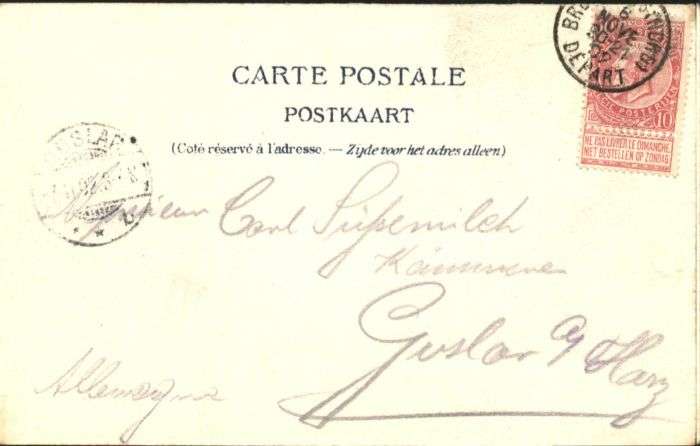 CARTE POSTALE
POSTKAART
(Coté réservé à l'adresse. — Zyde voor het adres alleen)
DEPART
10
NE PAS LIVRER LE DIMANCHE.
NIET BESTELLEN OP ZONDAG.
Monsieur Carl Süßemilch
Goslar a/ Harz
Allemagne